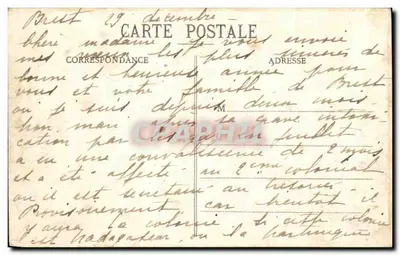 Brest 29 décembre
CARTE POSTALE
Chère madame je vous envoie
mes les plus sincères de
CORRESPONDANCE
ADRESSE
bonne et heureuse année pour
vous et votre famille de Brest
où je suis depuis deux mois
M
mon mari après sa grave intoxi-
cation par les gaz en juillet
a eu une convalescence de 2 mois
et a été affecté au 2ème colonial
où il est secrétaire au trésorier
car bientôt il
y aura la colonie si cette colonie
est Madagascar ou la Martinique